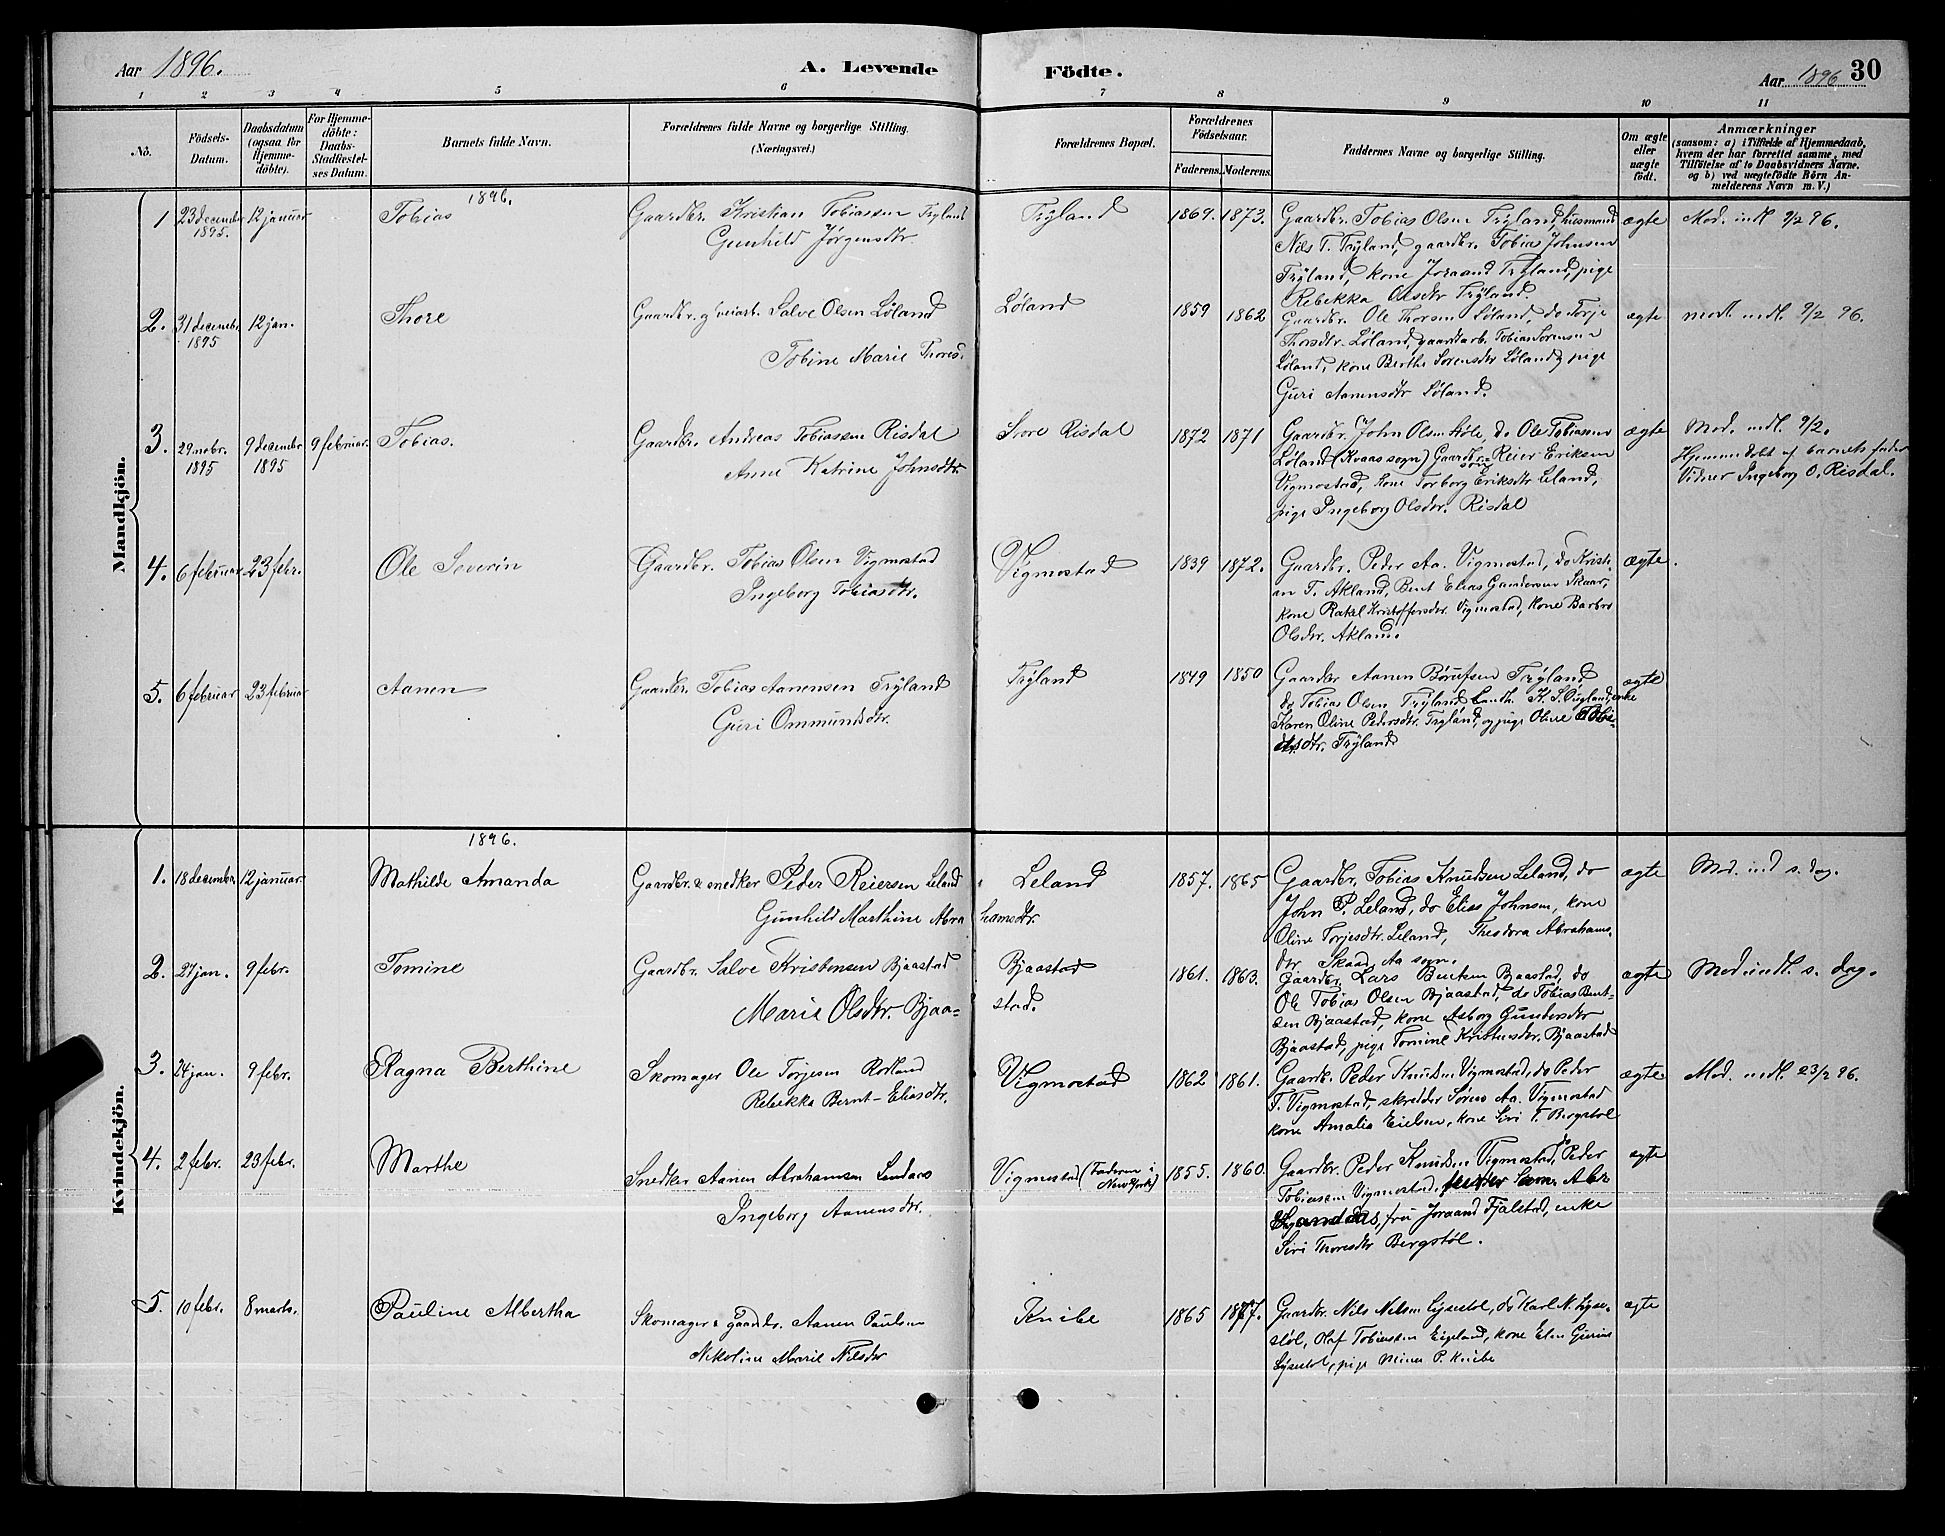 Aar 1896.
A. Levende Födte.
Aar 1896 30
1 2 3 4 5 6 7 8 9 10 11
No.
Födsels-Datum.
Daabsdatum (ogsaa for Hjemmedöbte).
For Hjemmedöbte: Daabs-Stadfæstelses Datum.
Barnets fulde Navn.
Forældrenes fulde Navne og borgerlige Stilling.
(Næringsvei.)
Forældrenes Bopæl.
Forældrenes Födselsaar.
Faderens. Moderens.
Faddernes Navne og borgerlige Stilling.
Om ægte eller uægte födt.
Anmærkninger
(saasom: a) i Tilfælde af Hjemmedaab,
hvem der har forrettet samme, med
Tilföielse af to Daabsvidners Navne.
og b) ved uægtefödte Börn An-
melderens Navn m. V.)
Mandkjön.
1896.
1 23 decembr 1895. 12 januar Tobias
Gaardbr. Kristian Tobiassen Tryland
Gunhild Jørgensdtr.
Tryland 1869. 1873.
Gaardbr. Tobias Olsen Tryland, husmand
Nils T. Tryland, gaardbr. Tobias Johnsen
Tryland, kone Joraand Tryland, pige
Rebekka Olsdtr Tryland.
ægte Mod. indl 9/2 96.
2. 31 decembr 1895 12 jan. Thore
Gaardbr. og veiarb. Salve Olsen Løland
Tobine Marie Thores.
Løland 1859 1862
Gaardbr. Ole Thorsen Løland, do Torje
Thorsdtr. Løland, gaardarb. Tobias Sørensen
Løland, kone Berthe Sørensdtr Løland, pige
Guri Aanensdtr Løland.
ægte mod. indl. 9/2 96.
3. 29 nobr. 1895 9 decembr 1895 9 februar. Tobias.
Gaardbr. Andreas Tobiassen Risdal
Anne Katrine Johnsdtr.
Søre Risdal 1872 1871
Gaardbr. John Olsen Høle, do Ole Tobiassen
Løland (Kvaas sogn) Gaardbr. søn Reier Eriksen
Vigmostad, kone Torborg Eriksdtr Leland,
pige Ingeborg Olsdtr. Risdal
ægte Mod. indl. 9/2.
Hjemmedøbt af barnets fader
Vidner Ingeborg O. Risdal.
4. 6 februar 23 febr. Ole Severin
Gaardbr. Tobias Olsen Vigmostad
Ingeborg Tobiasdtr.
Vigmostad 1839 1872.
Gaardbr. Peder Aa. Vigmostad, do Kristi-
an T. Akland, Bent Elias Gundersen Skaar,
kone Rakel Kristoffersdtr. Vigmostad, kone Barbro
Olsdtr. Akland.
ægte.
5. 6 februar 23 februar Aanen
Gaardbr. Tobias Aanensen Tryland
Guri Ommundsdtr.
Tryland 1849 1850
Gaardbr Aanen Børufsen Tryland
do Tobias Olsen Tryland, Landh. K. S. Rugland, enke
Karen Oline Pedersdtr. Tryland, og pige Oline Tobi-
asdtr. Tryland
ægte
Kvindekjön.
1896.
1. 18 decembr. 12 januar. Mathilde Amanda
Gaardbr. & snedker Peder Reiersen Leland
Gunhild Marthine Abra hamsdtr.
Leland 1857. 1865
Gaardbr. Tobias Knudsen Leland, do
John P. Leland, do Elias Johnsen, kone
Oline Torjesdtr. Leland, Theodora Abrahams-
dtr Skaad, Aa sogn.
ægte Mod. ind s. dag.
2. 27 jan. 9 febr. Tomine
Gaardbr. Salve Kristensen Bjaastad
Marie Olsdtr. Bjaa=
Bjaastad
stad. 1861. 1863.
Gaardbr. Lars Bentsen Bjaastad, do
Ole Tobias Olsen Bjaastad, do Tobias Bent-
sen Bjaastad, kone Asborg Gundersdtr
Bjaastad, pige Tomine Kristensdtr. Bjaastad
ægte Mod. indl. s. dag.
3. 24 jan. 9 febr. Ragna Berthine
Skomager Ole Torjesen Rotland
Rebekka Bernt-Eliasdtr.
Vigmostad 1862 1861.
Gaardb. Peder Knudsen Vigmostad, do Peder
T. Vigmostad, skredder Søren Aa. Vigmostad
kone Amalia Eielsen, kone Siri T. Bergstøl
ægte Mod. indl. 23/2 96.
4. 2 febr. 23 febr. Marthe
Snedker Aanen Abrahamsen Landaas
Ingeborg Aanensdtr.
Vigmostad (Faderen i New York) 1855. 1860.
Gaardbr. Peder Knudsen Vigmostad, do Peder
Tobiassen Vigmostad,
Landaas, fru Joraand Fjalstad, enke
Siri Thoresdtr Bergstøl.
ægte
5. 10 febr. 8 marts. Pauline Albertha
Skomager & gaardbr. Aanen Paulsen
Nikoline Marie Nilsdtr
Knibe 1865 1877.
Gaardbr. Nils Nilsen Lysestøl, do Karl N. Lyse-
støl, Olaf Tobiassen Eigeland, kone Elen
Lysestøl, pige Mina P. Knibe
ægte